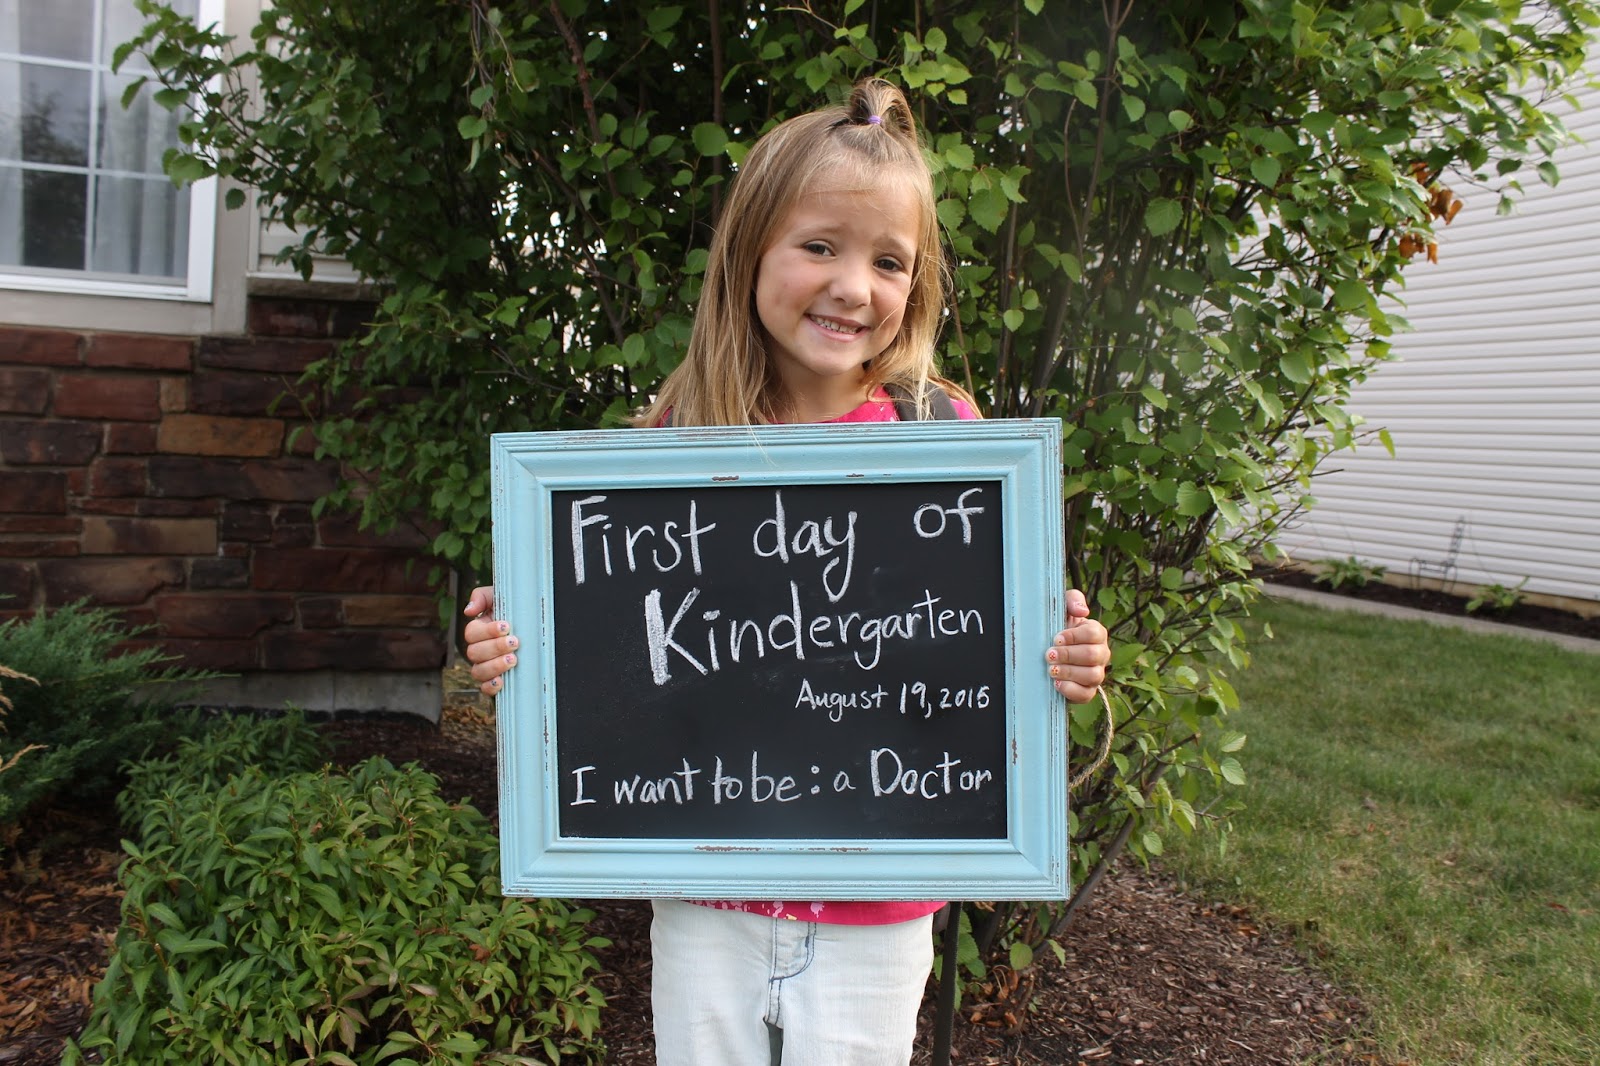 First day of
Kindergarten
August 19, 2015
I want to be: a Doctor